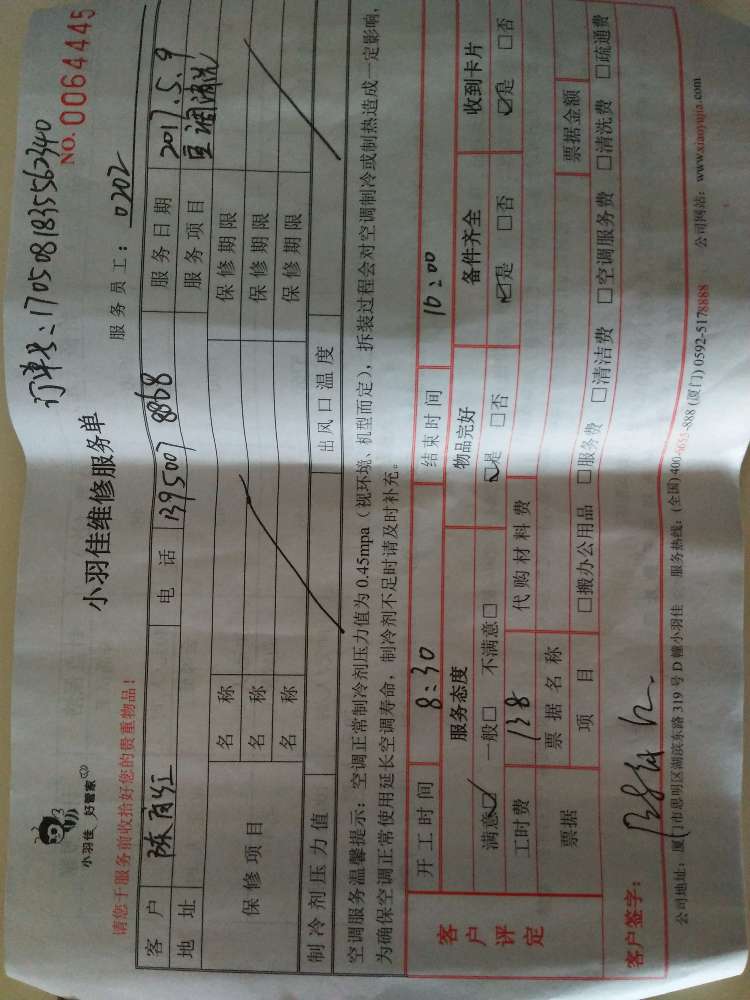 订单号：1705081835562340
小羽佳 好管家
小羽佳维修服务单
NO. 0064445
请您于服务前收拾好您的贵重物品！
服务员工：0202
客户 电话 1395007 8868 服务日期 2017.5.9
地址 服务项目 空调清洗
保修项目 名称 保修期限
名称 保修期限
名称 保修期限
制冷剂压力值 出风口温度
空调服务温馨提示：空调正常制冷剂压力值为 0.45mpa（视环境、机型而定），拆装过程会对空调制冷或制热造成一定影响，
为确保空调正常使用延长空调寿命，制冷剂不足时请及时补充。
客户评定
开工时间 8:30 结束时间 10:00
服务态度 物品完好 备件齐全 收到卡片
满意☑ 一般□ 不满意□ ☑是 □否 ☑是 □否 ☑是 □否
工时费 138 代购材料费
票据 票据名称 票据金额
项目 □搬办公用品 □服务费 □清洁费 □空调服务费 □清洗费 □疏通费
客户签字：
公司地址：厦门市思明区湖滨东路 319 号 D 幢小羽佳 服务热线：(全国)400-6655-888 (厦门) 0592-5178888 公司网站：www.xiaoyujia.com